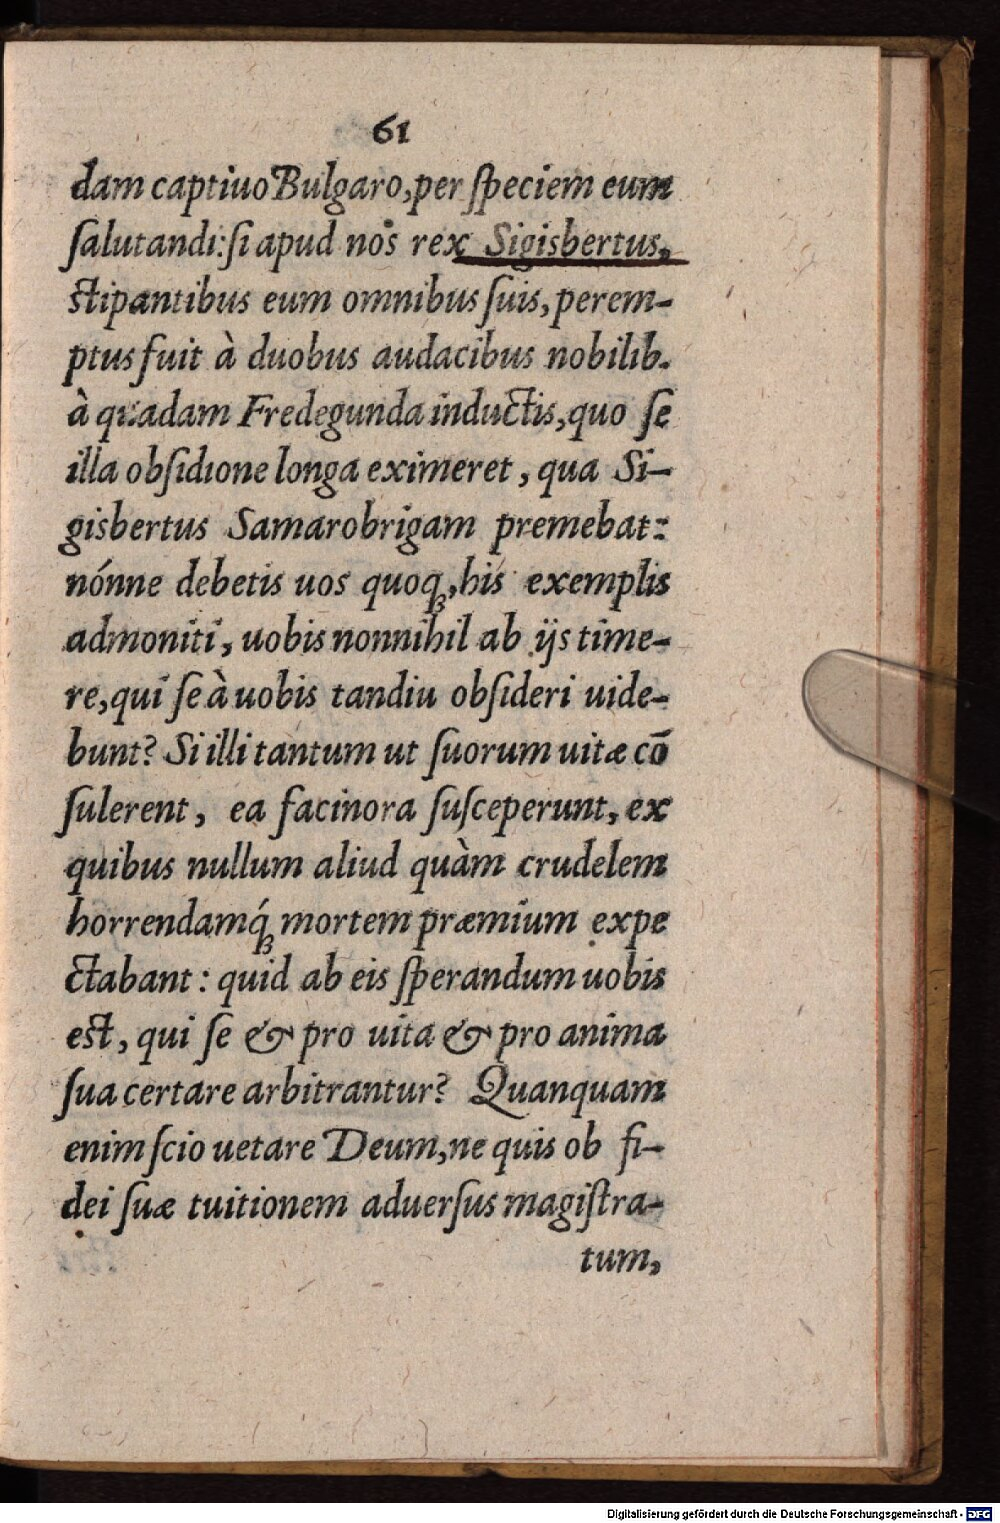 61
dam captiuo Bulgaro, per ſpeciem eum
ſalutandi: ſi apud nos rex Sigisbertus,
ſtipantibus eum omnibus ſuis, perem-
ptus fuit à duobus audacibus nobilib.
à quadam Fredegunda inductis, quo ſe
illa obſidione longa eximeret, qua Si-
gisbertus Samarobrigam premebat:
nónne debetis uos quoq;, his exemplis
admoniti, uobis nonnihil ab ijs time-
re, qui ſe à uobis tandiu obſideri uide-
bunt? Si illi tantum ut ſuorum uitæ cō
ſulerent, ea facinora ſuſceperunt, ex
quibus nullum aliud quàm crudelem
horrendamq́; mortem præmium expe
ctabant: quid ab eis ſperandum uobis
eſt, qui ſe & pro uita & pro anima
ſua certare arbitrantur? Quanquam
enim ſcio uetare Deum, ne quis ob fi-
dei ſuæ tuitionem aduerſus magiſtra-
tum,
Digitalisierung gefördert durch die Deutsche Forschungsgemeinschaft - DFG